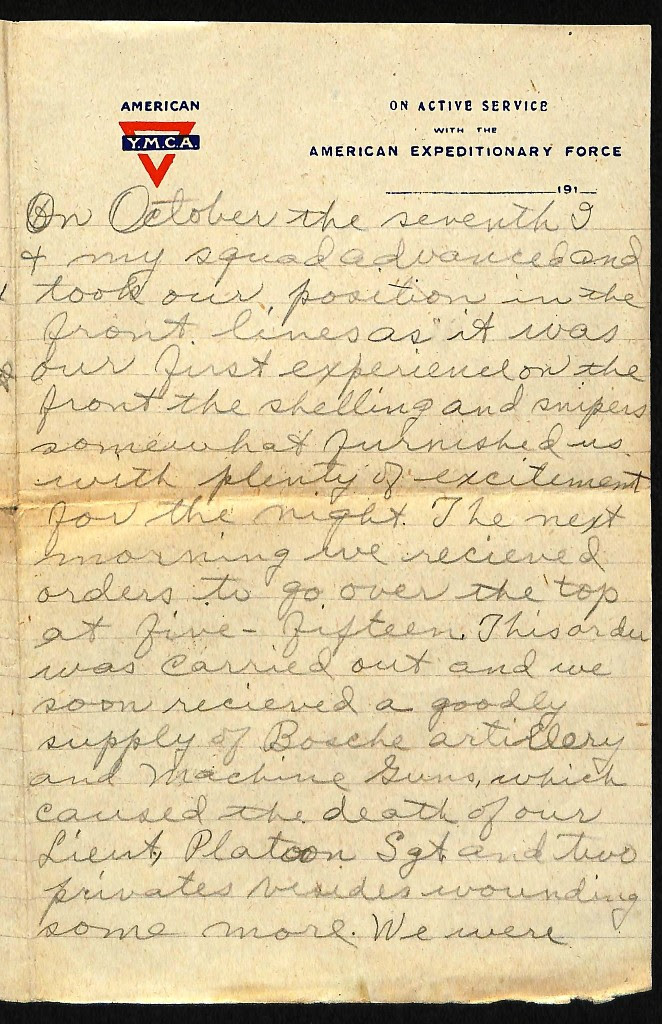 AMERICAN
Y.M.C.A.
ON ACTIVE SERVICE
WITH THE
AMERICAN EXPEDITIONARY FORCE
191
On October the seventh I
+ my squad advanced and
took our position in the
front lines as it was
our first experience on the
front the shelling and snipers
somewhat furnished us
with plenty of excitiment
for the night. The next
morning we recieved
orders to go over the top
at five-fifteen. This order
was carried out and we
soon recieved a goodly
supply of Bosche artillery
and Machine Guns, which
caused the death of our
Lieut, Platoon Sgt. and two
privates besides wounding
some more. We were